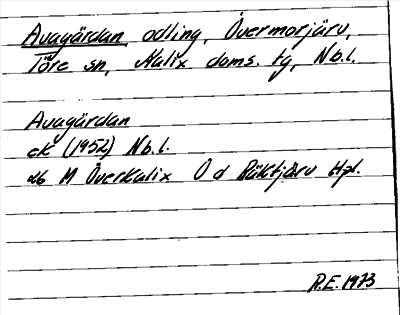 Avagärdan, odling, Övermorjärv,
Töre sn, Kalix doms. tg, Nb.l.
Avagärdan
ek (1952) Nb.l.
db M Överkalix O d Räktjärv Hgl.
R.E. 1973